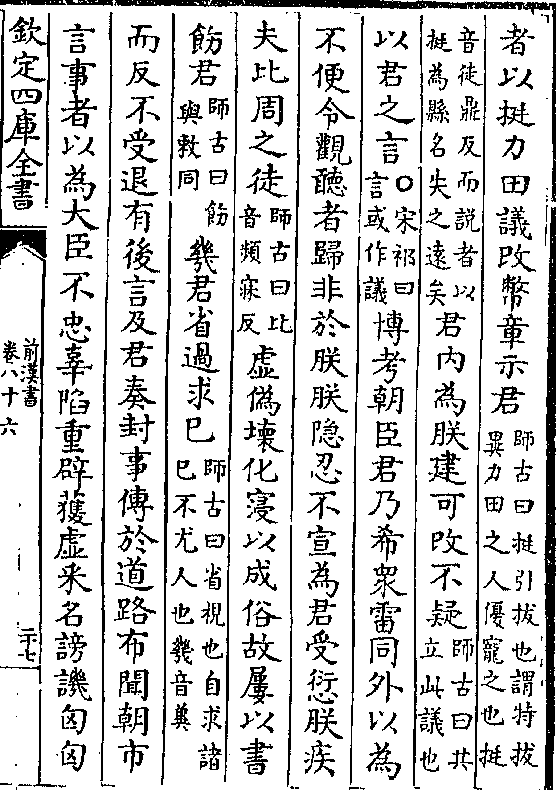 者以挻力田議改幣章示君師古曰挻引拔也謂特拔異力田之人優寵之也挻
音徒鼎反而説者以挻為縣名失之遠矣君内為朕建可改不疑師古曰共立此議也
以君之言○宋祁曰言或作議博考朝臣君乃希衆雷同外以為
不便令觀聽者歸非於朕朕隐忍不宣為君受愆朕疾
夫比周之徒師古曰比音頻寐反虚偽壊化寖以成俗故屢以書
飭君師古曰飭與敕同幾君省過求已師古曰省視也自求諸已不尤人也幾音冀
而反不受退有後言及君奏封事傳於道路布聞朝市
言事者以為大臣不忠辜陷重辟獲虚采名謗譏匈匈
欽定四庫全書
前漢書
卷八十六
二十七